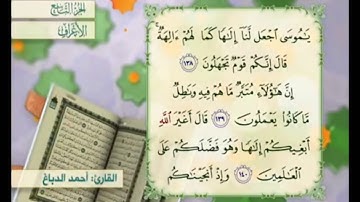 الجزء التاسع
الأعراف
يَٰمُوسَى ٱجْعَل لَّنَآ إِلَٰهًا كَمَا لَهُمْ ءَالِهَةٌ
قَالَ إِنَّكُمْ قَوْمٌ تَجْهَلُونَ ١٣٨
إِنَّ هَٰٓؤُلَآءِ مُتَبَّرٌ مَّا هُمْ فِيهِ وَبَٰطِلٌ
مَّا كَانُوا۟ يَعْمَلُونَ ١٣٩ قَالَ أَغَيْرَ ٱللَّهِ
أَبْغِيكُمْ إِلَٰهًا وَهُوَ فَضَّلَكُمْ عَلَى
ٱلْعَٰلَمِينَ ١٤٠ وَإِذْ أَنجَيْنَٰكُم
القارئ: أحمد الدباغ